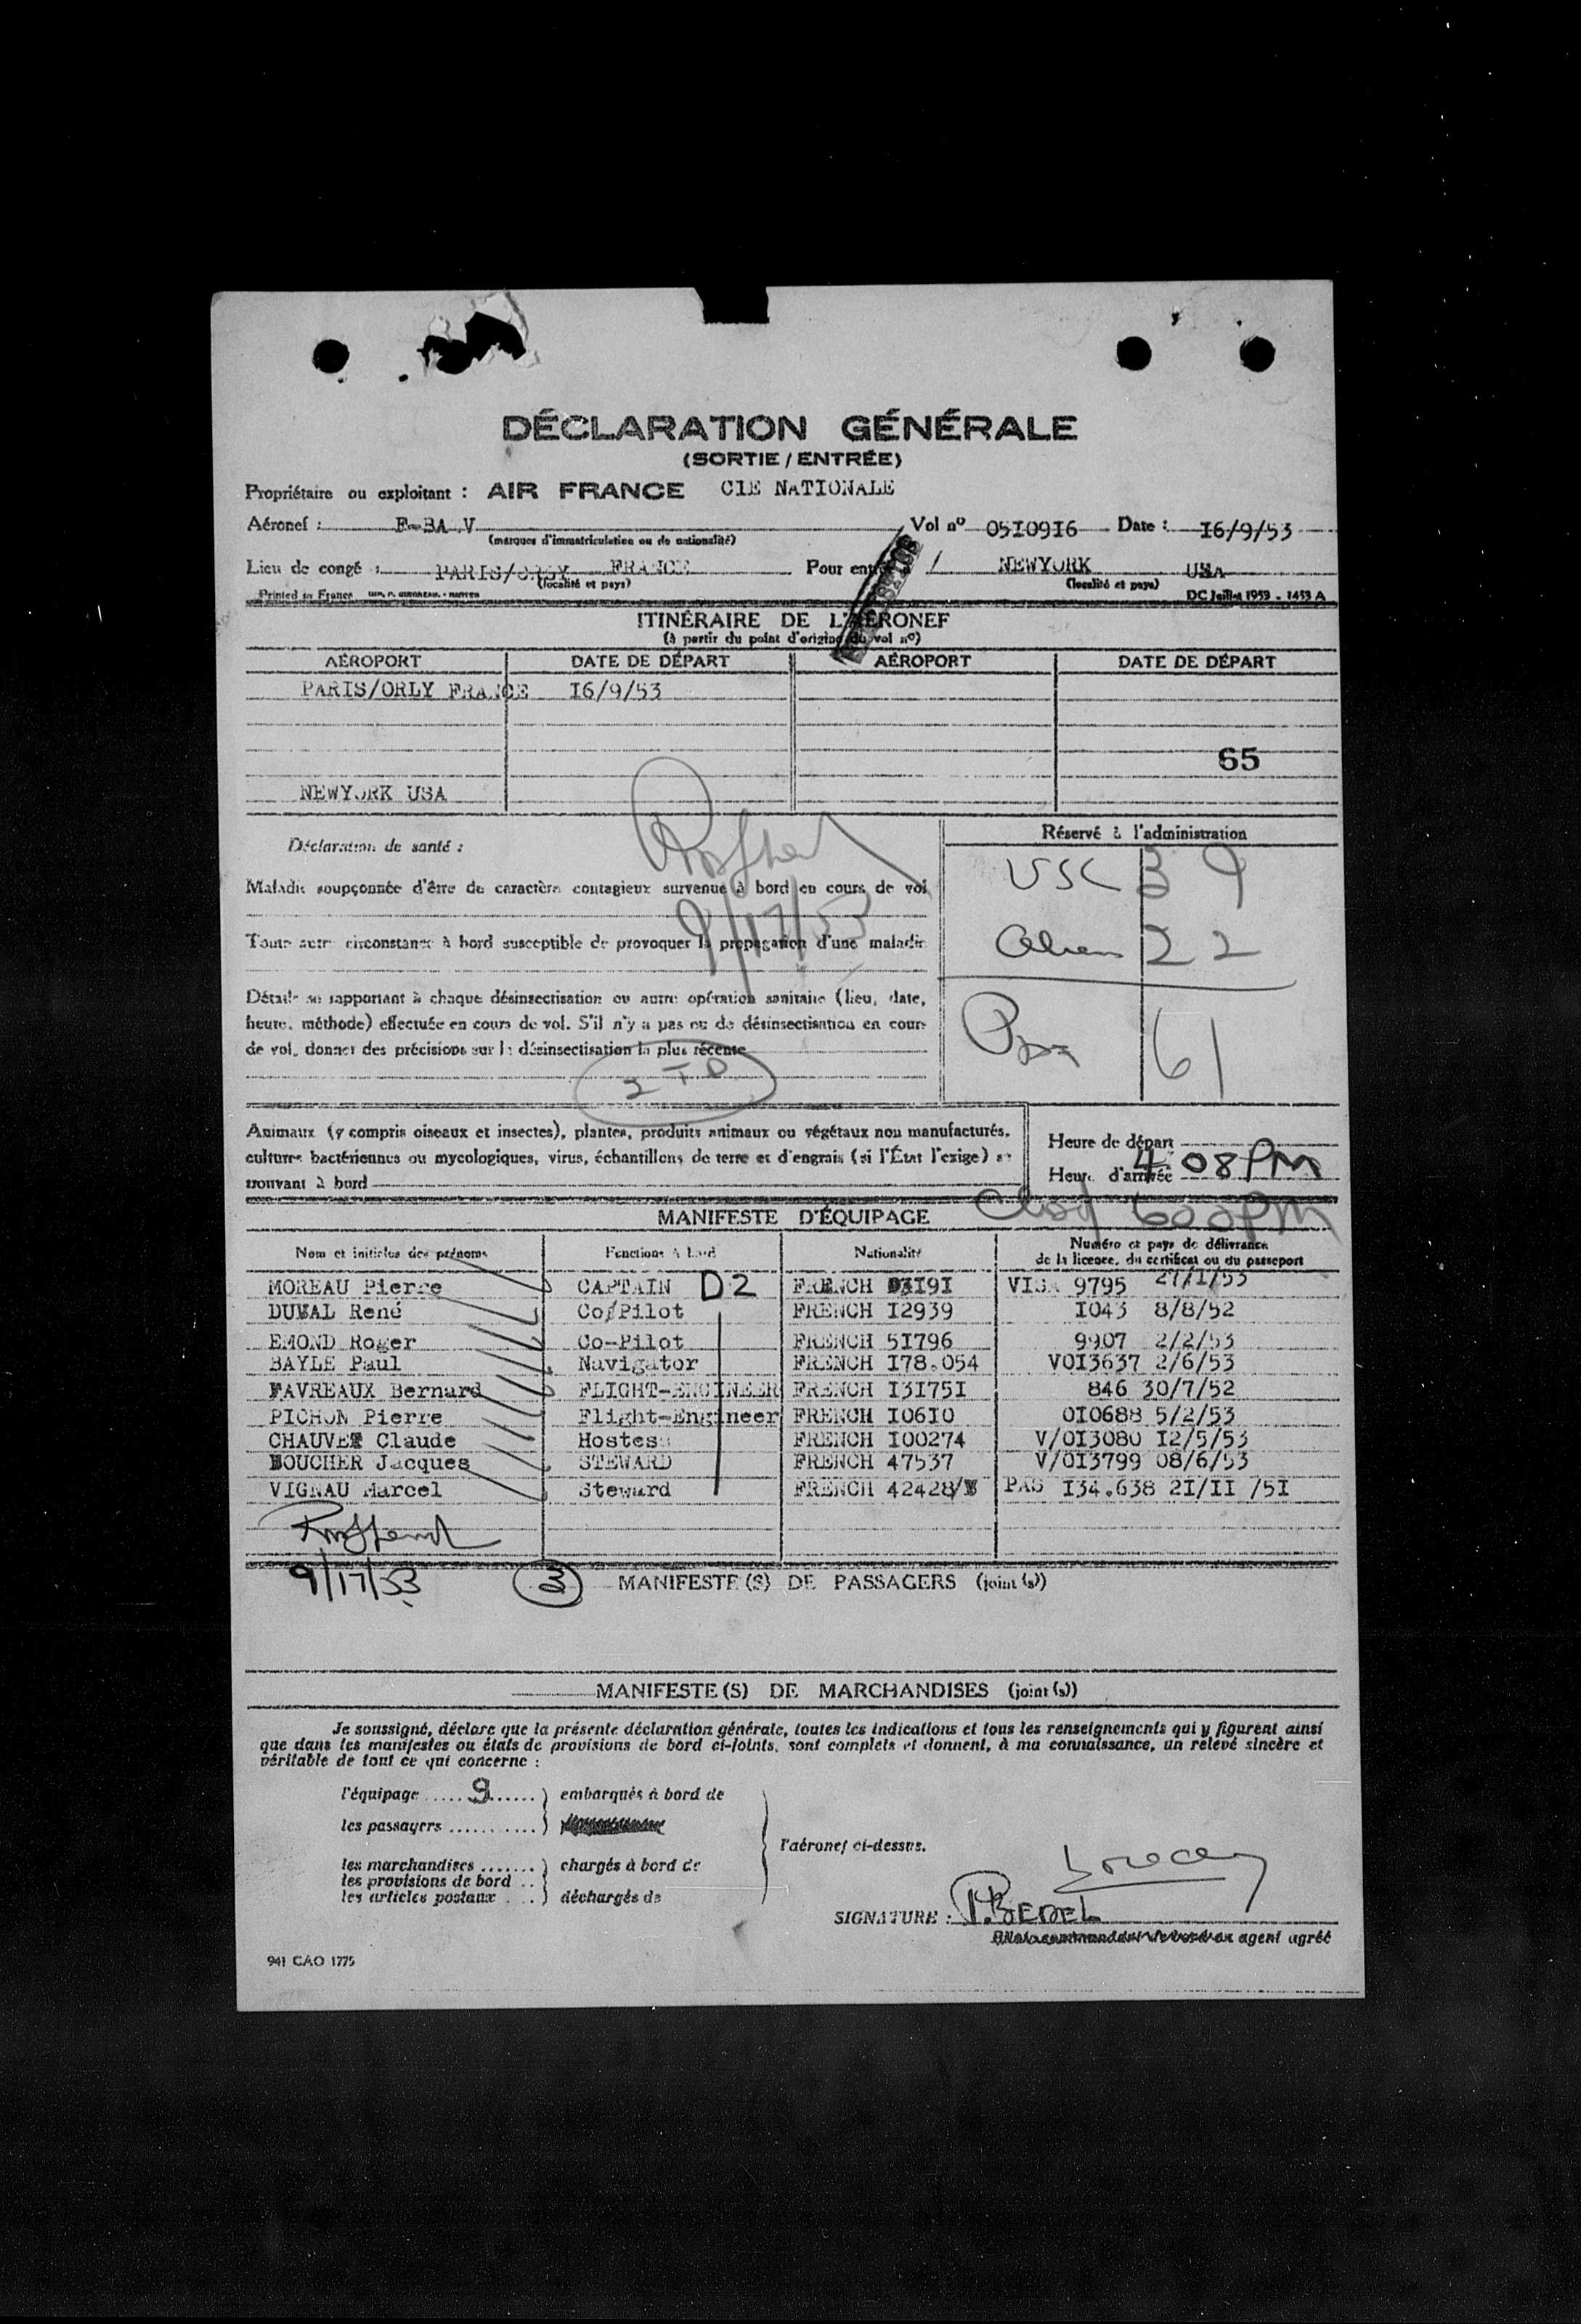 DÉCLARATION GÉNÉRALE
(SORTIE / ENTRÉE)
Propriétaire ou exploitant : AIR FRANCE CIE NATIONALE
Aéronef : F-BA V Vol nº 05I09I6 Date : I6/9/53
(marques d'immatriculation ou de nationalité)
Lieu de congé : PARIS/ORLY FRANCE Pour entrée à / NEWYORK USA
(localité et pays) (localité et pays)
Printed in France DC Juillet 1953 - 1453 A
ITINÉRAIRE DE L'AÉRONEF
(à partir du point d'origine du vol nº)
AÉROPORT DATE DE DÉPART AÉROPORT DATE DE DÉPART
PARIS/ORLY FRANCE I6/9/53
65
NEWYORK USA
Déclaration de santé :
Réservé à l'administration
USC 39
Maladie soupçonnée d'être de caractère contagieux survenue à bord en cours de vol
9/17/53
Toute autre circonstance à bord susceptible de provoquer la propagation d'une maladie
Alien 22
Détails se rapportant à chaque désinsectisation ou autre opération sanitaire (lieu, date,
heure, méthode) effectuée en cours de vol. S'il n'y a pas eu de désinsectisation en cours
de vol, donner des précisions sur la désinsectisation la plus récente
61
Animaux (y compris oiseaux et insectes), plantes, produits animaux ou végétaux non manufacturés,
cultures bactériennes ou mycologiques, virus, échantillons de terre et d'engrais (si l'État l'exige) se
trouvant à bord
Heure de départ
Heure d'arrivée 4:08 PM
600PM
MANIFESTE D'ÉQUIPAGE
Nom et initiales des prénoms Fonctions à bord Nationalité Numéro et pays de délivrance
de la licence, du certificat ou du passeport
MOREAU Pierre CAPTAIN D2 FRENCH D3I9I VISA 9795 27/I/53
DUVAL René Co/Pilot FRENCH I2939 I043 8/8/52
EMOND Roger Co-Pilot FRENCH 5I796 9907 2/2/53
BAYLE Paul Navigator FRENCH I78.054 VOI3637 2/6/53
FAVREAUX Bernard FLIGHT-ENGINEER FRENCH I3I75I 846 30/7/52
PICHON Pierre Flight-Engineer FRENCH I06I0 0I0688 5/2/53
CHAUVET Claude Hostess FRENCH I00274 V/0I3080 I2/5/53
BOUCHER Jacques STEWARD FRENCH 47537 V/0I3799 08/6/53
VIGNAU Marcel Steward FRENCH 42428/ PAS I34.638 2I/II /5I
9/17/53 3 MANIFESTE(S) DE PASSAGERS (joint(s))
MANIFESTE(S) DE MARCHANDISES (joint(s))
Je soussigné, déclare que la présente déclaration générale, toutes les indications et tous les renseignements qui y figurent ainsi
que dans les manifestes ou états de provisions de bord ci-joints, sont complets et donnent, à ma connaissance, un relevé sincère et
véritable de tout ce qui concerne :
l'équipage ..... 9 ...... ) embarqués à bord de
les passagers ........... )
l'aéronef ci-dessus.
les marchandises ....... ) chargés à bord de
les provisions de bord ..
les articles postaux .... ) déchargés de
SIGNATURE : P. BEDEL
agent agréé
941 CAO 1775